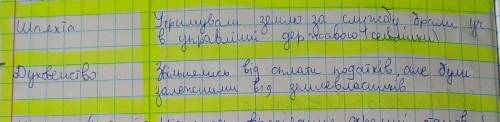 Шляхта
Утримували землю за службу, брали уч.
в управлінні державою (сеймики)
Духовенство
Звільнялись від сплати податків, але були
залежними від землевласників